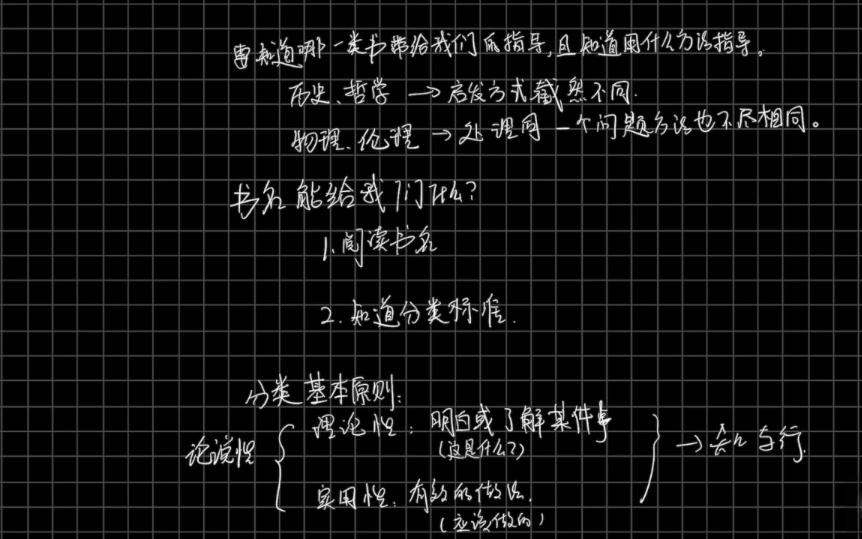 要知道哪一类书带给我们的指导,且知道用什么方法指导。
历史、哲学 → 启发方式截然不同.
物理、伦理 → 处理同一个问题方法也不尽相同。
书名能给我们什么?
1.阅读书名
2.知道分类标准.
分类基本原则:
论说性
理论性:明白或了解某件事
(这是什么?)
实用性:有效的做法.
(应该做的)
→ 知与行.